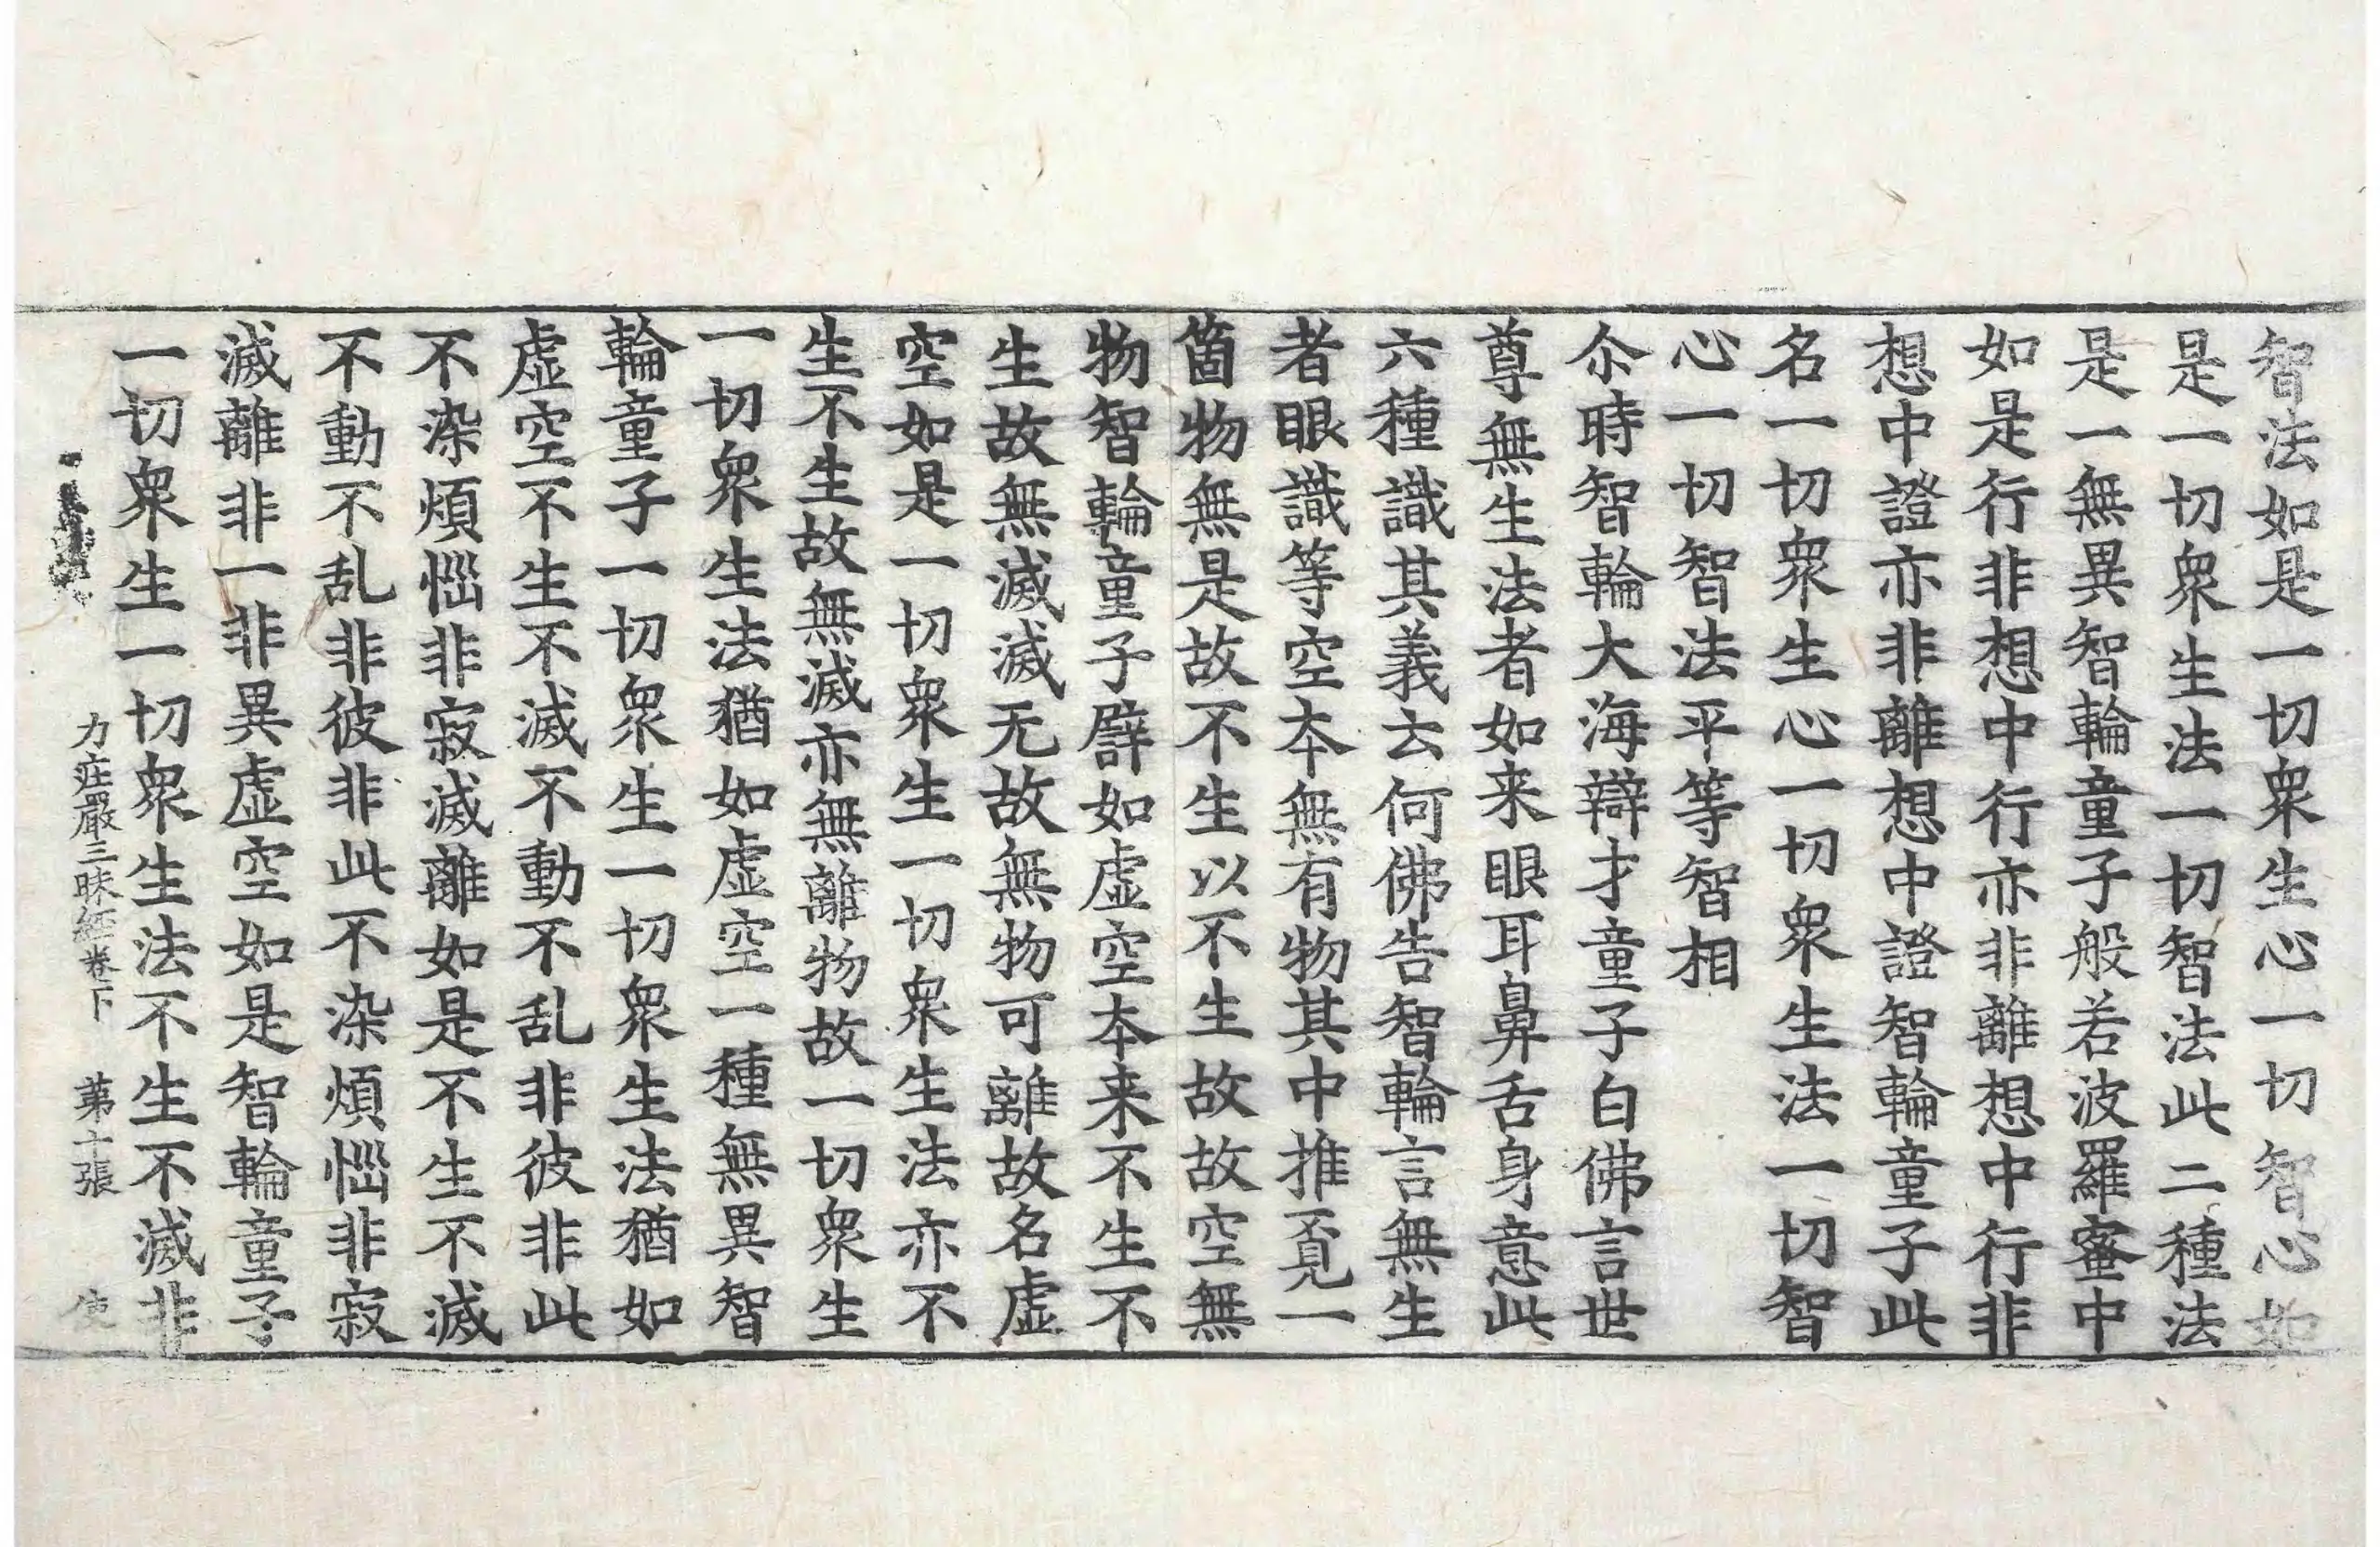 智法如是一切衆生心一切智心如
是一切衆生法一切智法此二種法
是一無異智輪童子般若波羅蜜中
如是行非想中行亦非離想中行非
想中證亦非離想中證智輪童子此
名一切衆生心一切衆生法一切智
心一切智法平等智相
尒時智輪大海辯才童子白佛言世
尊無生法者如来眼耳鼻舌身意此
六種識其義云何佛告智輪言無生
者眼識等空夲無有物其中推覔一
箇物無是故不生以不生故故空無
物智輪童子譬如虛空夲来不生不
生故無滅滅无故無物可離故名虛
空如是一切衆生一切衆生法亦不
生不生故無滅亦無離物故一切衆生
一切衆生法猶如虛空一種無異智
輪童子一切衆生一切衆生法猶如
虛空不生不滅不動不乱非彼非此
不染煩惱非寂滅離如是不生不滅
不動不乱非彼非此不染煩惱非寂
滅離非一非異虛空如是智輪童子
一切衆生一切衆生法不生不滅非
力庄嚴三昧經卷下 苐十張 使